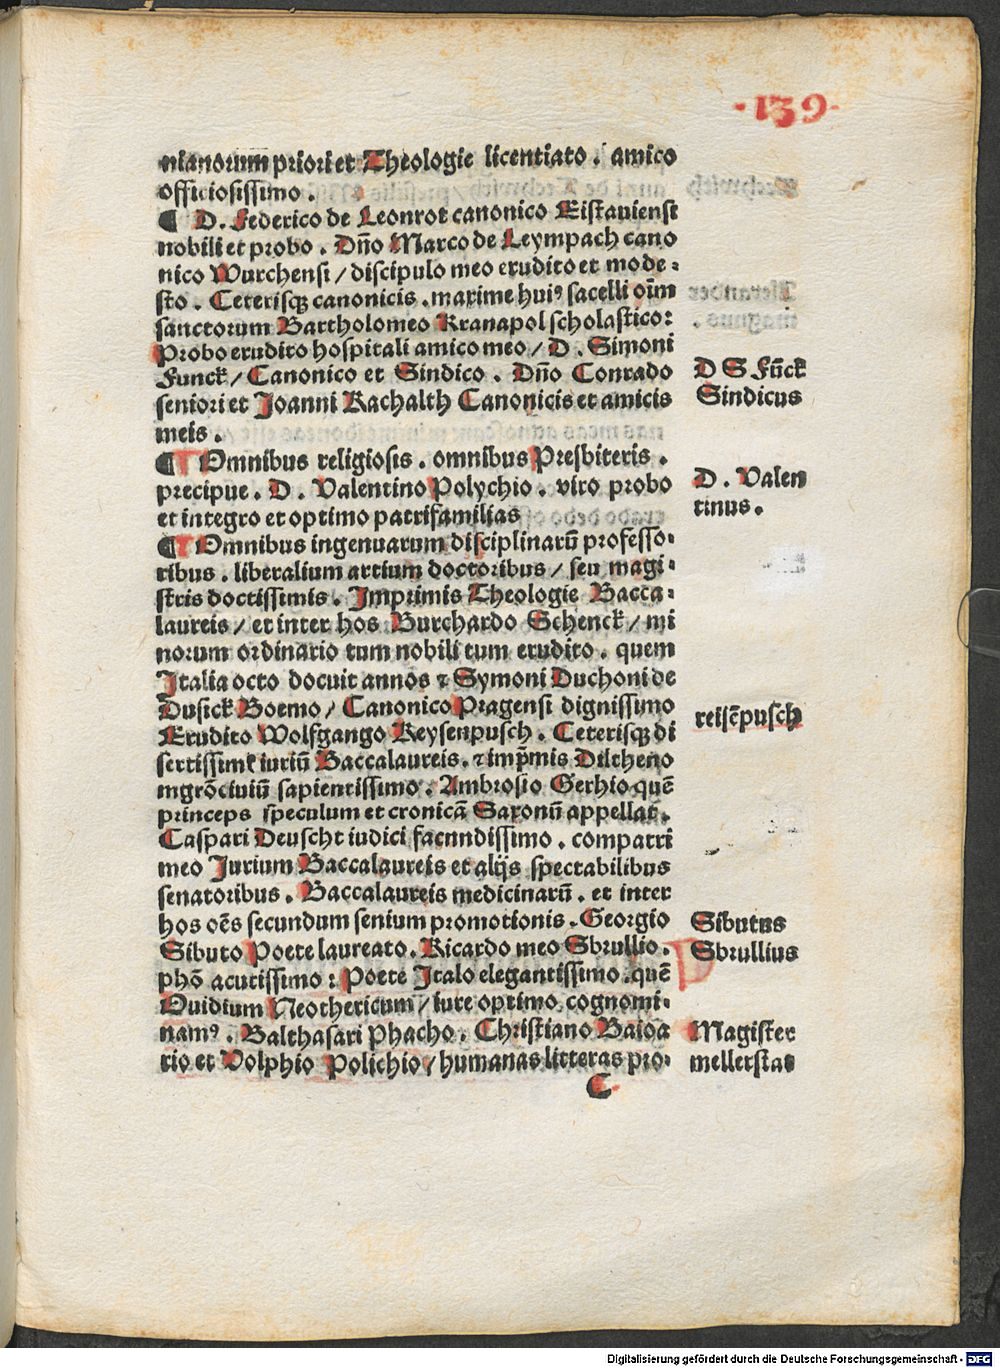 ·139·
nianorum priori et Theologie licentiato . amico
officiosissimo .
¶ D. Federico de Leonrot canonico Eistauiensi
nobili et probo . Dño Marco de Leympach cano
nico Wurchensi / discipulo meo erudito et mode⸗
sto . Ceterisqꝫ canonicis . maxime huiꝰ sacelli oīm
sanctorum Bartholomeo Kranapol scholastico:
Probo erudito hospitali amico meo / D. Simoni
Funck / Canonico et Sindico . Dño Conrado
D S Fūck
seniori et Joanni Rachalth Canonicis et amicis
Sindicus
meis .
¶ Omnibus religiosis . omnibus Presbiteris .
precipue . D. Valentino Polychio . viro probo
D . Valen
et integro et optimo patrifamilias
tinus .
¶ Omnibus ingenuarum disciplinarū professo⸗
ribus . liberalium artium doctoribus / seu magi⸗
stris doctissimis . Imprimis Theologie Bacca⸗
laureis / et inter hos Burchardo Schenck / mi
norum ordinario tum nobili tum erudito . quem
Italia octo docuit annos ⁊ Symoni Duchoni de
Dusick Boemo / Canonico Pragensi dignissimo
reisēpusch
Erudito Wolfgango Reysenpusch . Ceterisqꝫ di
sertissimi iuriū Baccalaureis . ⁊ imp̄mis Diltheno
mgrō ciuiū sapientissimo . Ambrosio Gerhio quē
princeps speculum et cronicā Saxonū appellat .
Caspari Deuscht iudici facundissimo . compatri
meo Jurium Baccalaureis et alijs spectabilibus
senatoribus . Baccalaureis medicinarū . et inter
hos oēs secundum senium promotionis . Georgio
Sibutus
Sibuto Poete laureato . Ricardo meo Sbrullio .
Sbrullius
phō acutissimo : Poete Italo elegantissimo . quē
Ouidium Neothericum / iure optimo cognomi⸗
namꝰ . Balthasari Phacho . Christiano Baioa
Magister
rio et Volphio Polichio / humanas litteras pro⸗
mellerstat
C
Digitalisierung gefördert durch die Deutsche Forschungsgemeinschaft - DFG